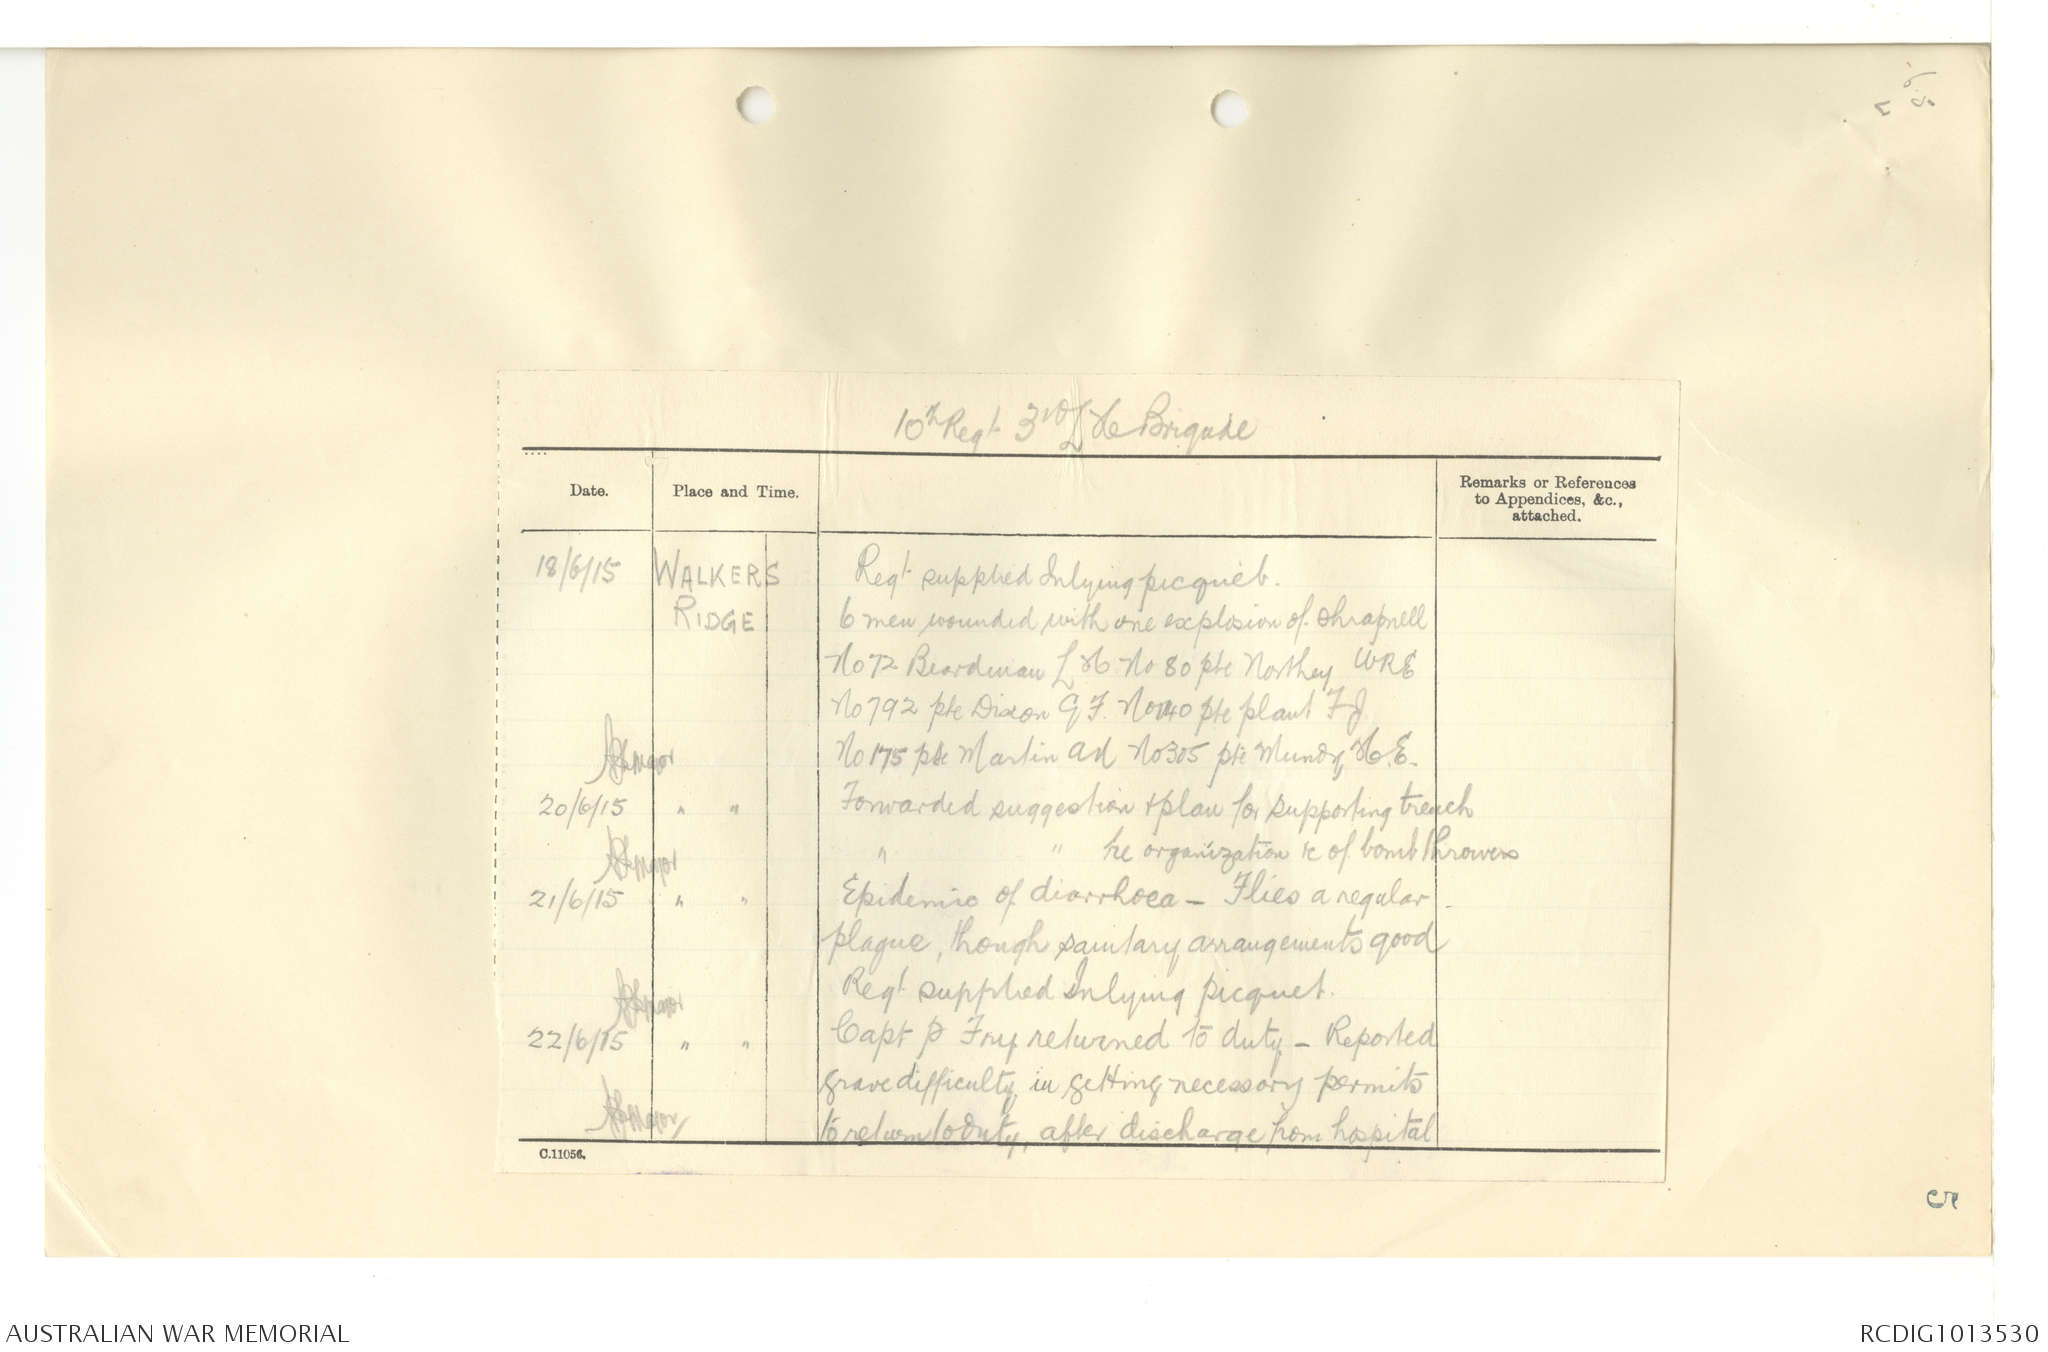 10th Regt 3rd L H Brigade
Date.
Place and Time.
Remarks or References
to Appendices, &c.,
attached.
18/6/15 WALKERS Regt supplied Inlying picquet.
RIDGE 6 men wounded with one explosion of shrapnell
No 72 Boardman L H No 80 pte Northey WRE
No 792 pte Dixon G F. No 140 pte plant F J.
No 175 pte Martin A H No 305 pte Mundy H.E.
20/6/15 " " Forwarded suggestion & plan for supporting trench
" " re organization &c of bomb throwers
21/6/15 " " Epidemic of diarrhoea - Flies a regular
plague, though sanitary arrangements good
Regt supplied Inlying picquet.
22/6/15 " " Capt P Fry returned to duty - Reported
grave difficulty in getting necessary permits
to return to duty, after discharge from hospital
C.11056.
5
AUSTRALIAN WAR MEMORIAL
RCDIG1013530